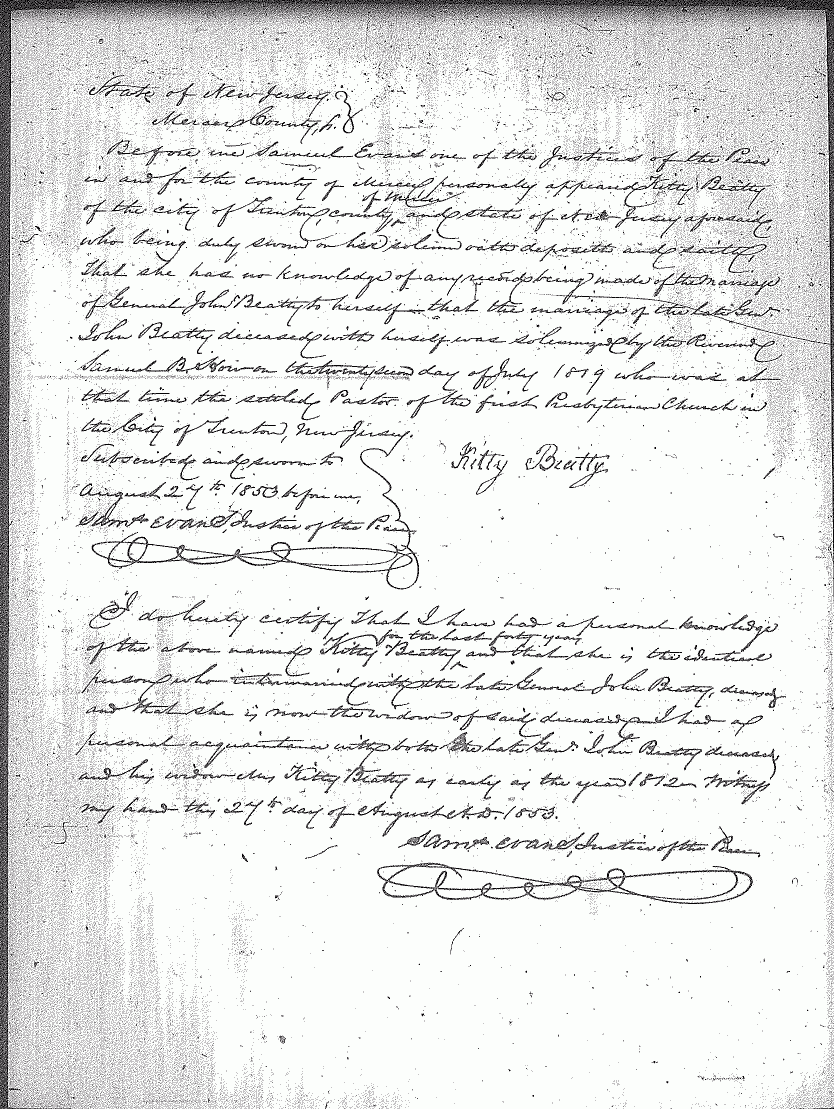 State of New Jersey.
Mercer County, ss.
Before me Samuel Evans one of the Justices of the Peace
in and for the county of Mercer personally appeared Kitty Beatty
of Mercer
of the city of Trenton, county, and state of New Jersey aforesaid,
who being duly sworn on her solemn oath deposeth and saith,
That she has no knowledge of any record being made of the marriage
of General John Beatty to herself — that the marriage of the late Genl.
John Beatty deceased with herself was solemnized by the Reverend
Samuel B. How on the twenty second day of July 1819 who was at
that time the settled Pastor of the first Presbyterian Church in
the City of Trenton, New Jersey.
Subscribed and sworn to
August 27th 1853 before me,
Saml. Evans, Justice of the Peace
Kitty Beatty
I do hereby certify that I have had a personal knowledge
for the last forty years
of the above named Kitty Beatty and that she is the identical
person who intermarried with the late General John Beatty, deceased
and that she is now the widow of said deceased — I had a
personal acquaintance with both the late Genl. John Beatty deceased,
and his widow Mrs Kitty Beatty as early as the year 1812 — Witness
my hand this 27th day of August A.D. 1853.
Saml. Evans, Justice of the Peace